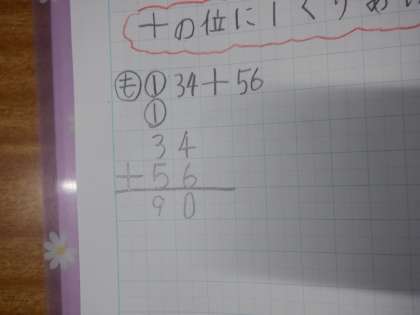 十の位に1くりあ
も ① 34+56
①
34
+56
90